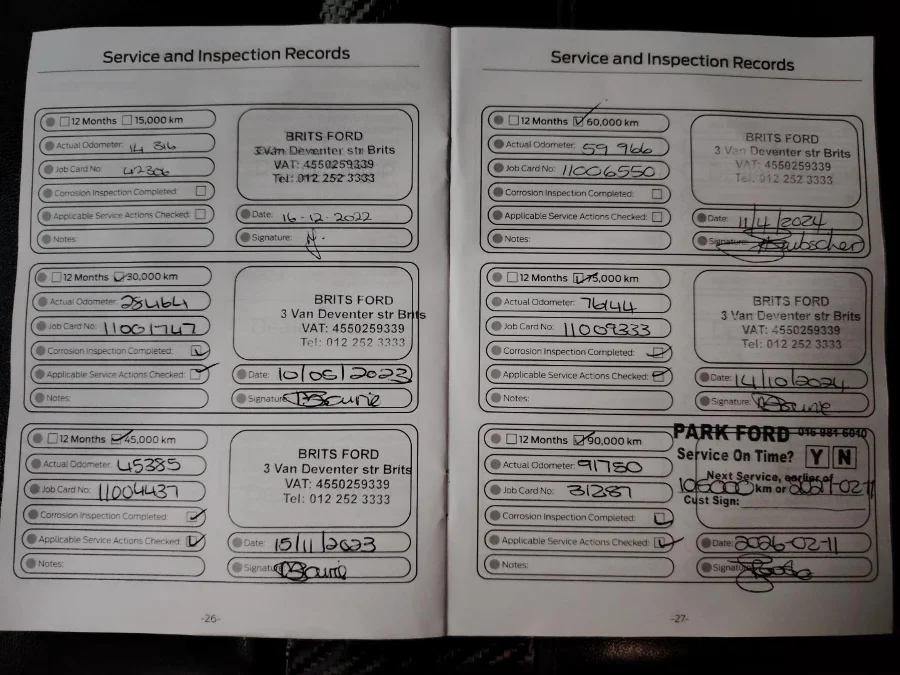 Service and Inspection Records
12 Months 15,000 km
Actual Odometer: 14 816
Job Card No: 42306
Corrosion Inspection Completed:
Applicable Service Actions Checked:
Notes:
BRITS FORD
3 Van Deventer str Brits
VAT: 4550259339
Tel: 012 252 3333
Date: 16-12-2022
Signature:
12 Months 30,000 km
Actual Odometer: 28464
Job Card No: 11001747
Corrosion Inspection Completed:
Applicable Service Actions Checked:
Notes:
BRITS FORD
3 Van Deventer str Brits
VAT: 4550259339
Tel: 012 252 3333
Date: 10/05/2023
Signature:
12 Months 45,000 km
Actual Odometer: 45385
Job Card No: 11004437
Corrosion Inspection Completed:
Applicable Service Actions Checked:
Notes:
BRITS FORD
3 Van Deventer str Brits
VAT: 4550259339
Tel: 012 252 3333
Date: 15/11/2023
Signature:
-26-
Service and Inspection Records
12 Months 60,000 km
Actual Odometer: 59 966
Job Card No: 11006550
Corrosion Inspection Completed:
Applicable Service Actions Checked:
Notes:
BRITS FORD
3 Van Deventer str Brits
VAT: 4550259339
Tel: 012 252 3333
Date: 11/4/2024
Signature:
12 Months 75,000 km
Actual Odometer: 76144
Job Card No: 11009333
Corrosion Inspection Completed:
Applicable Service Actions Checked:
Notes:
BRITS FORD
3 Van Deventer str Brits
VAT: 4550259339
Tel: 012 252 3333
Date: 14/10/2024
Signature:
12 Months 90,000 km
Actual Odometer: 91780
Job Card No: 31287
Corrosion Inspection Completed:
Applicable Service Actions Checked:
Notes:
PARK FORD 016 981 6010
Service On Time? Y N
Next Service, earlier of
km or
Cust Sign:
Date: 2026-02-11
Signature:
-27-